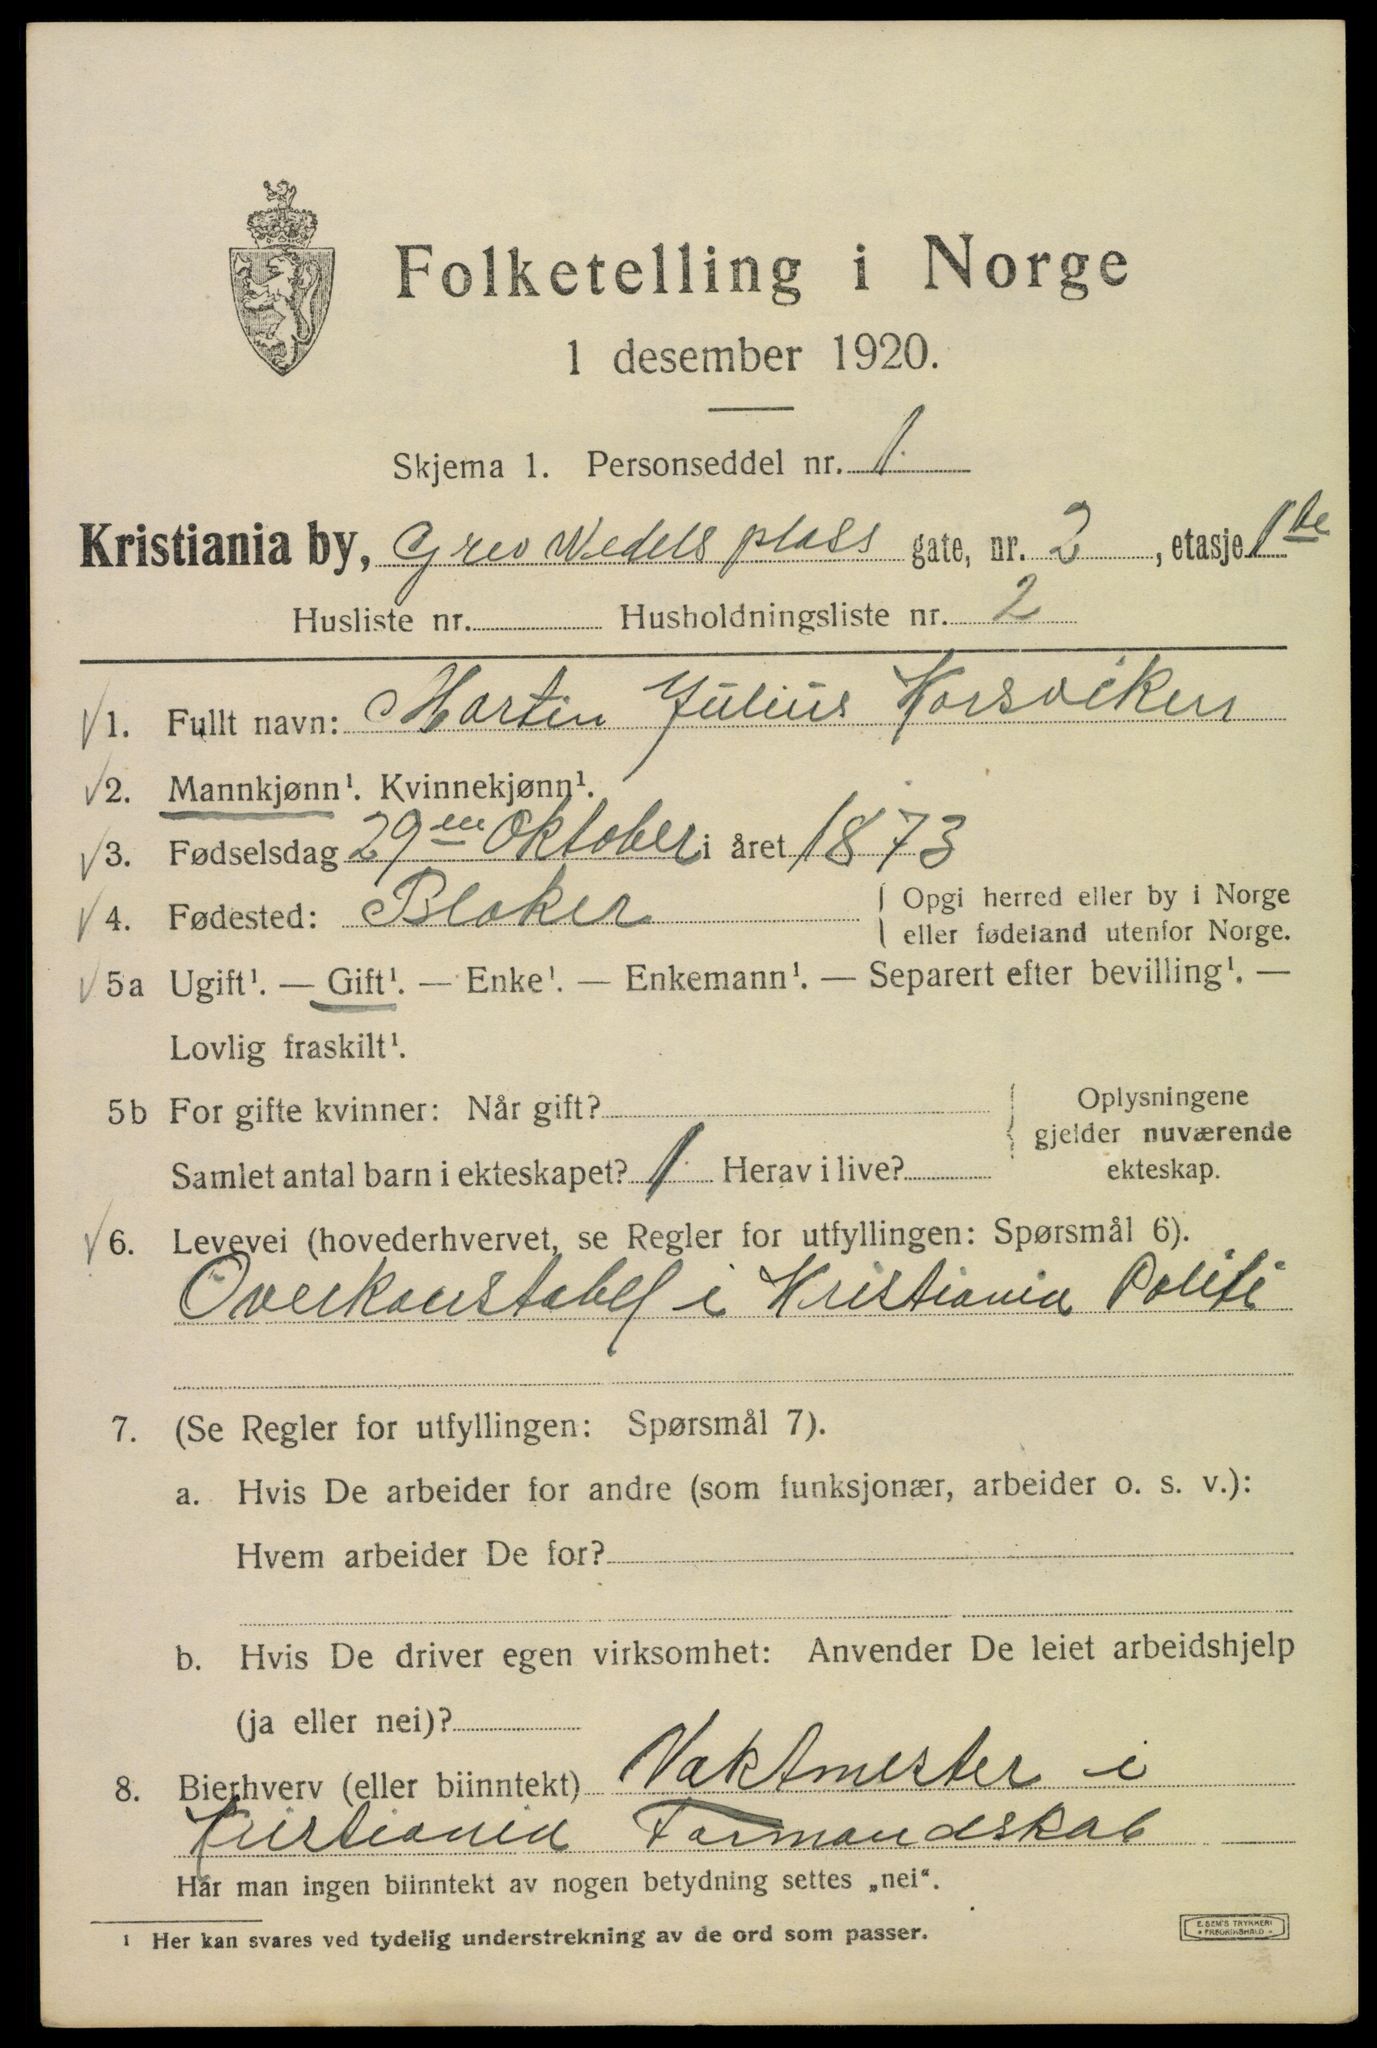 Folketelling i Norge
1 desember 1920.
Skjema 1. Personseddel nr. 1.
Kristiania by, Grev Wedels plass gate, nr. 2, etasje 1ste
Husliste nr. Husholdningsliste nr. 2
1. Fullt navn: Martin Julius Korsviken
2. Mannkjønn¹. Kvinnekjønn¹.
3. Fødselsdag 29en Oktober i året 1873
4. Fødested: Blaker { Opgi herred eller by i Norge
eller fødeland utenfor Norge.
5a Ugift¹. — Gift¹. — Enke¹. — Enkemann¹. — Separert efter bevilling¹. —
Lovlig fraskilt¹.
5b For gifte kvinner: Når gift?
Samlet antal barn i ekteskapet? 1. Herav i live?
Oplysningene
gjelder nuværende
ekteskap.
6. Levevei (hovederhvervet, se Regler for utfyllingen: Spørsmål 6).
Overkonstabel i Kristiania Politi
7. (Se Regler for utfyllingen: Spørsmål 7).
a. Hvis De arbeider for andre (som funksjonær, arbeider o. s. v.):
Hvem arbeider De for?
b. Hvis De driver egen virksomhet: Anvender De leiet arbeidshjelp
(ja eller nei)?
8. Bierhverv (eller biinntekt) Vaktmester i
Kristiania Formandskab
Har man ingen biinntekt av nogen betydning settes „nei“.
¹ Her kan svares ved tydelig understrekning av de ord som passer.
E. SEM'S TRYKKERI
* FREDRIKSHALD *